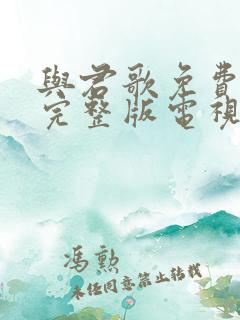 與君歌免費
完整版電視
馮勲
未經同意禁止转载